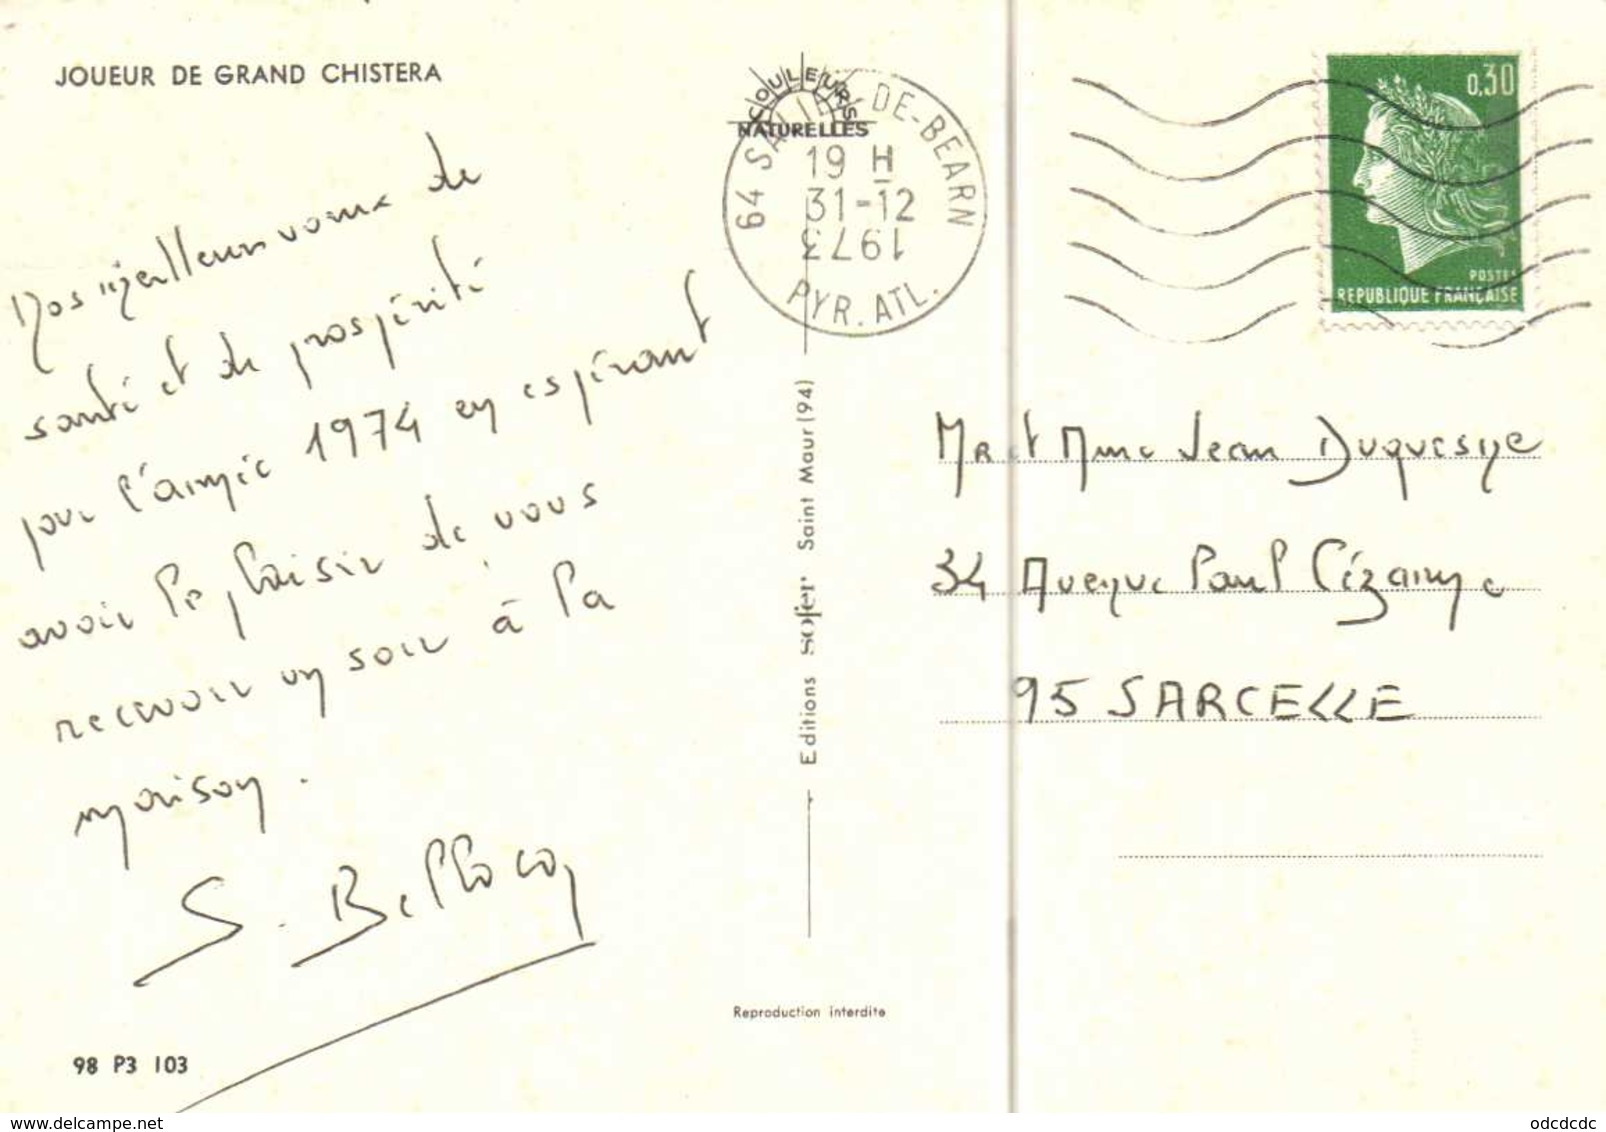 JOUEUR DE GRAND CHISTERA
Nos meilleurs voeux de
santé et de prospérité
pour l'année 1974 en espérant
avoir le plaisir de vous
recevoir un soir à la
maison.
98 P3 103
COULEURS
NATURELLES
64 SALIES-DE-BEARN
19 H
31-12
1973
PYR. ATL.
Editions sofer Saint Maur (94)
Reproduction interdite
0,30
POSTES
REPUBLIQUE FRANÇAISE
Mr et Mme Jean Duquesne
34 Avenue Paul Cézanne
95 SARCELLE
delcampe.net
odcdcdc